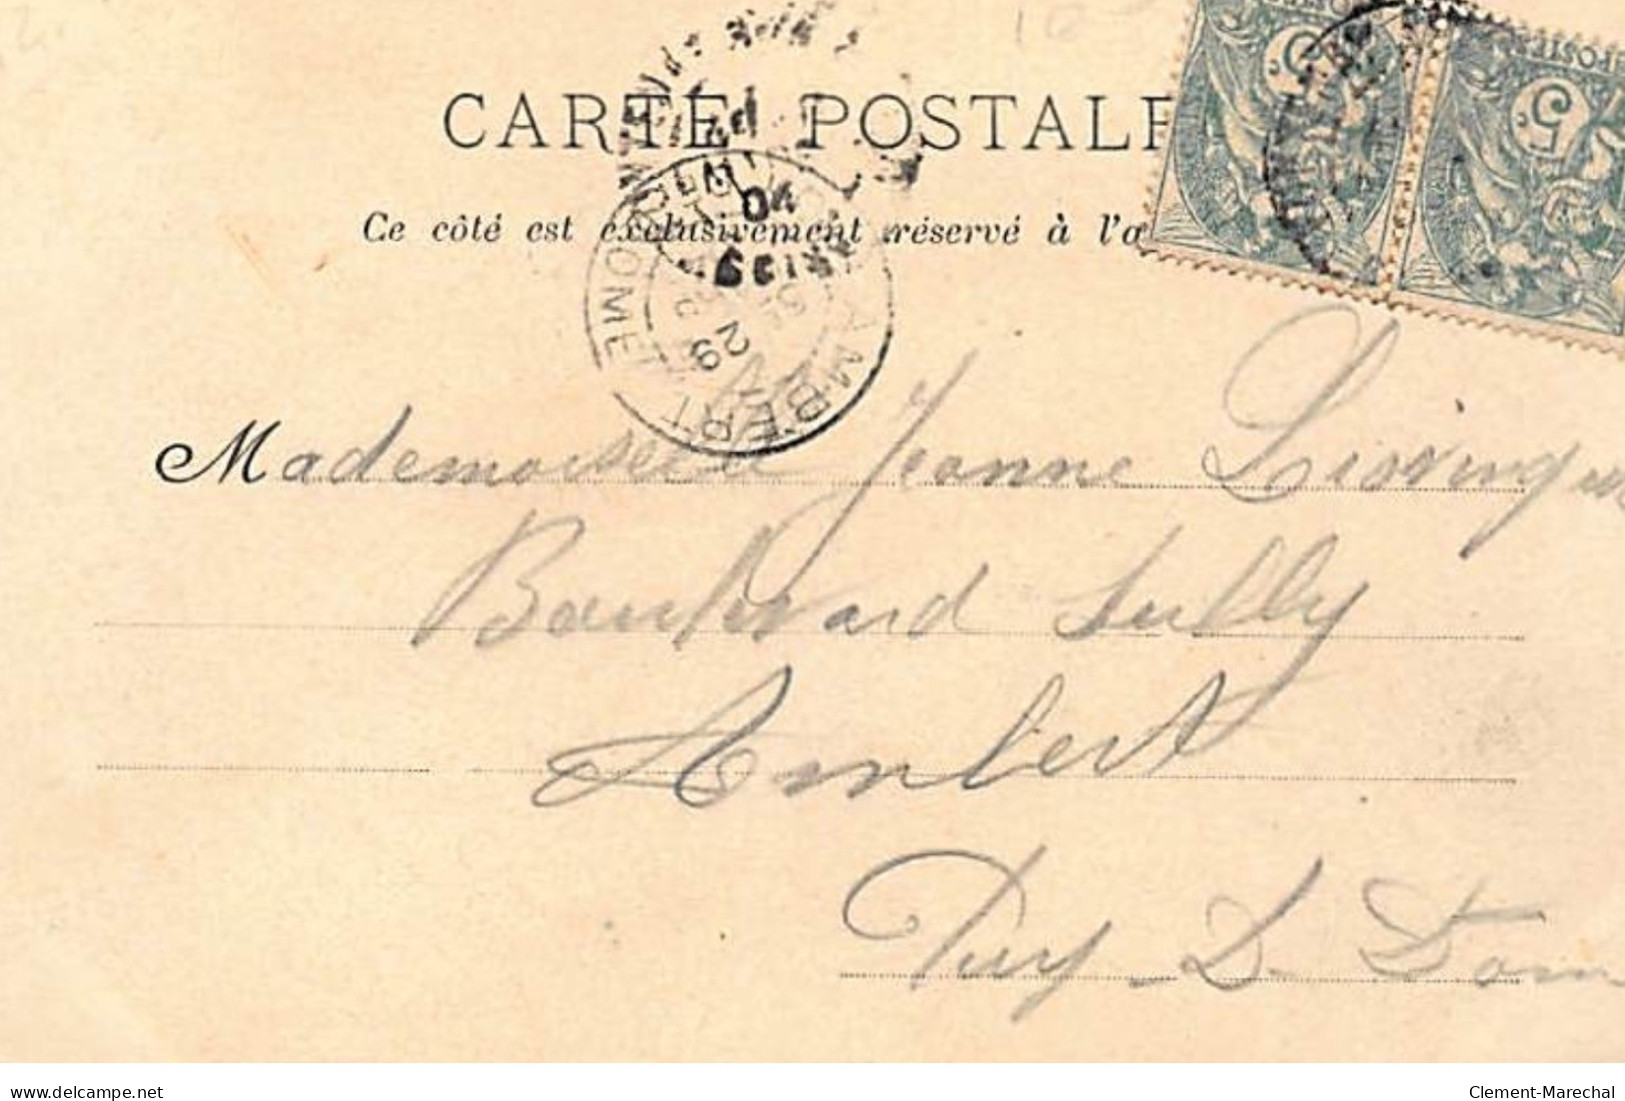 CARTE POSTALE
Ce côté est exclusivement réservé à l'a
Mademoiselle Jeanne
Boulevard Sully
Ambert
Puy-D-Dom
AMBERT
29
04
5c.
5c.
POSTES
delcampe.net
Clement-Marechal